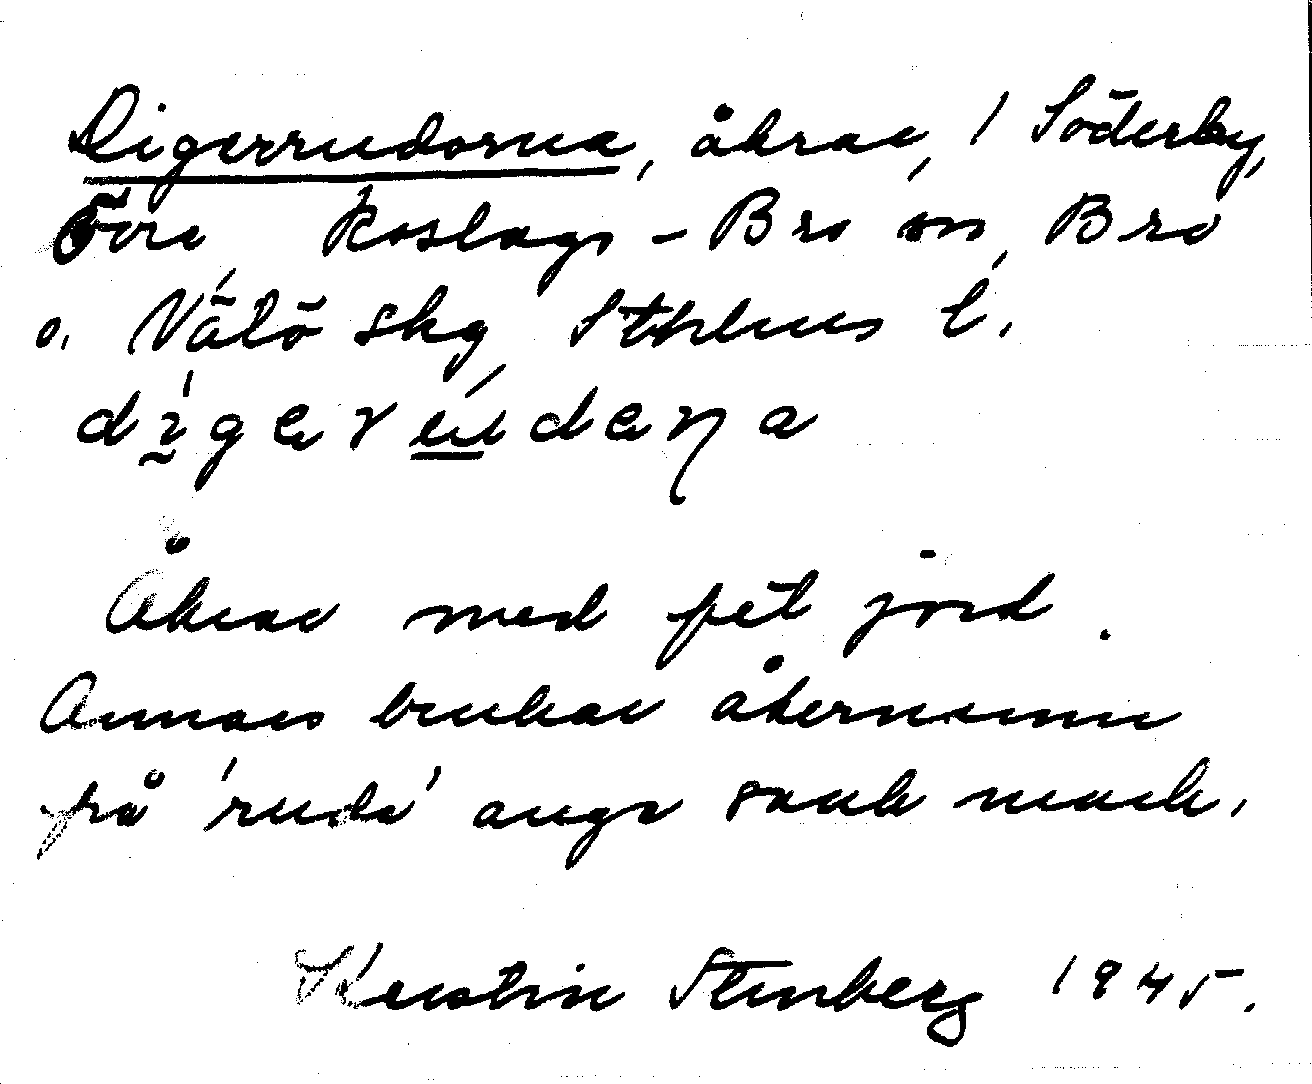 Digerrudorna, åkrar, i Söderby,
Övre Roslags-Bro sn, Bro
o. Vätö skg, Sthlms l.
Åkrar med fet jord.
Annars brukar åkernamn
på 'ruda' ange sank mark.
Kerstin Stenberg 1945.